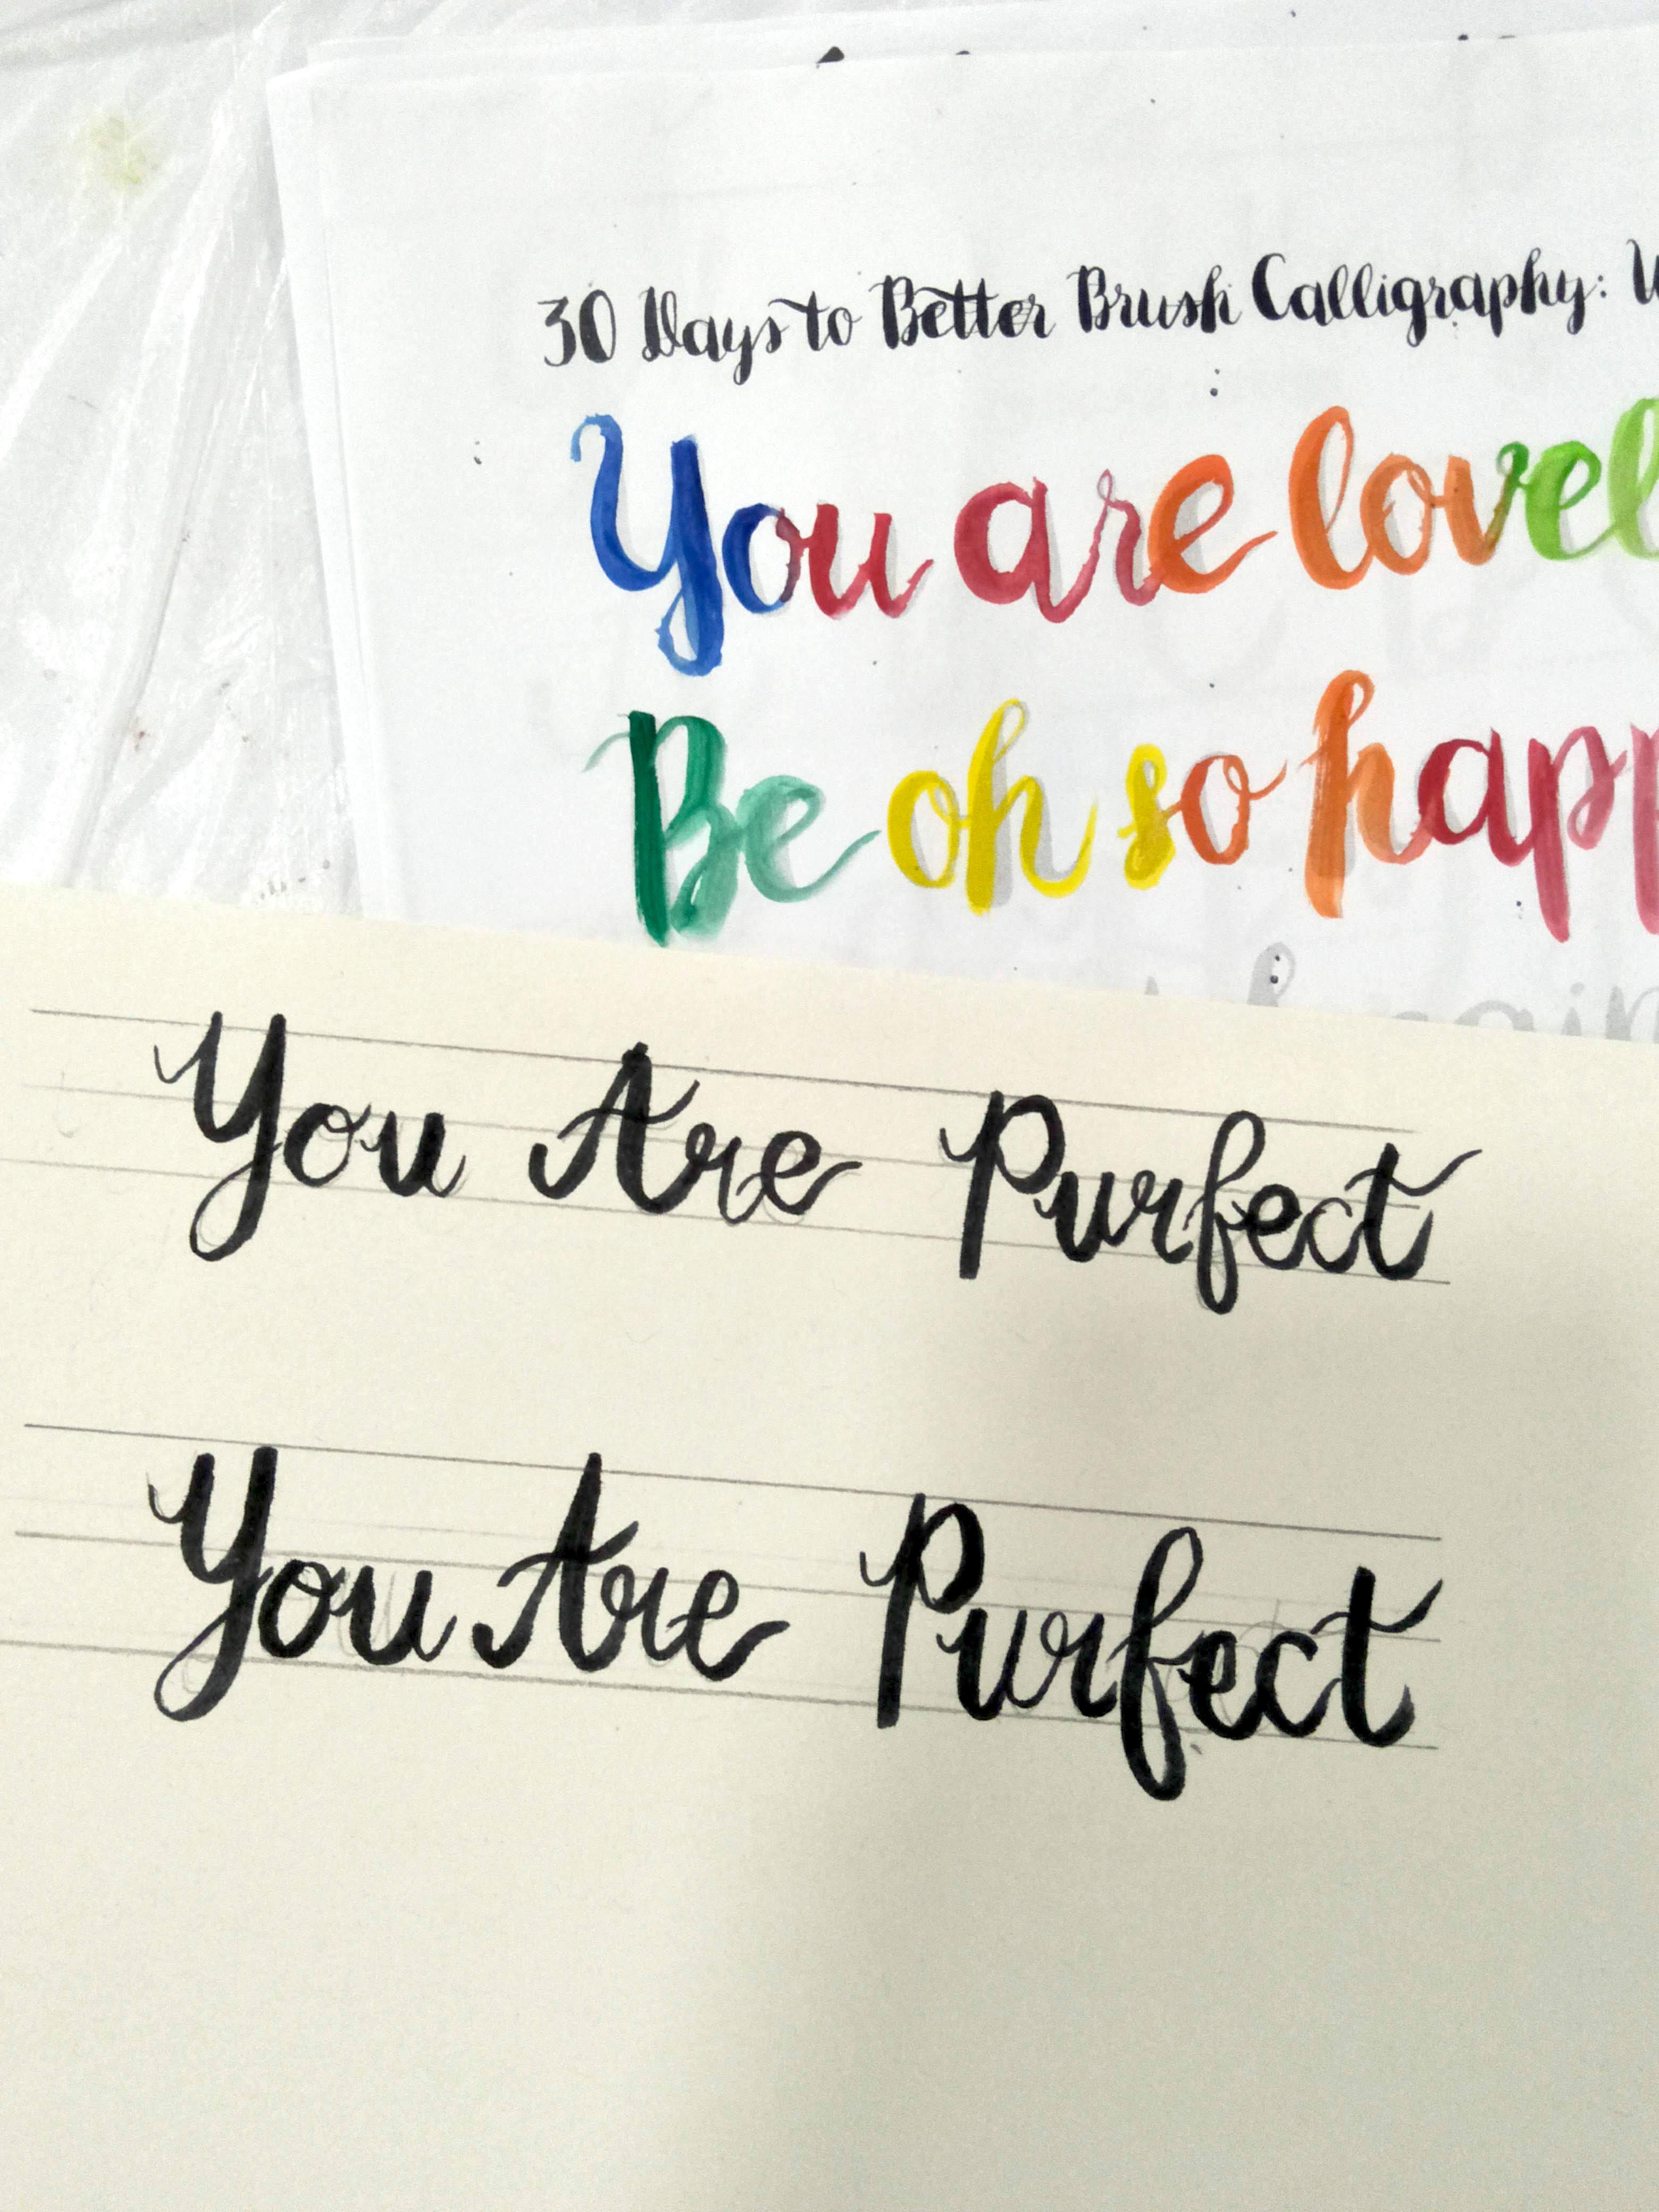 30 Days to Better Brush Calligraphy:
You are
Be oh so
You Are Purfect
You Are Purfect